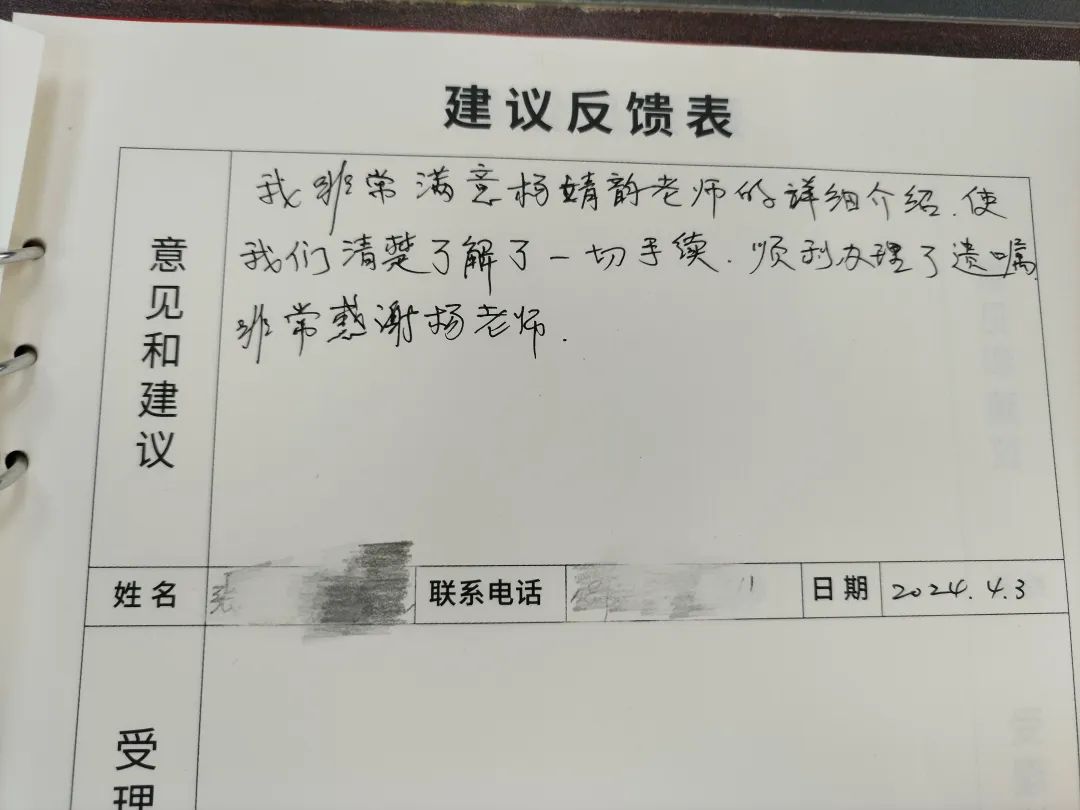 建议反馈表
意见和建议
我非常满意杨婧韵老师的详细介绍.使
我们清楚了解了一切手续.顺利办理了遗嘱.
非常感谢杨老师.
姓名
联系电话
日期
2024.4.3
受理